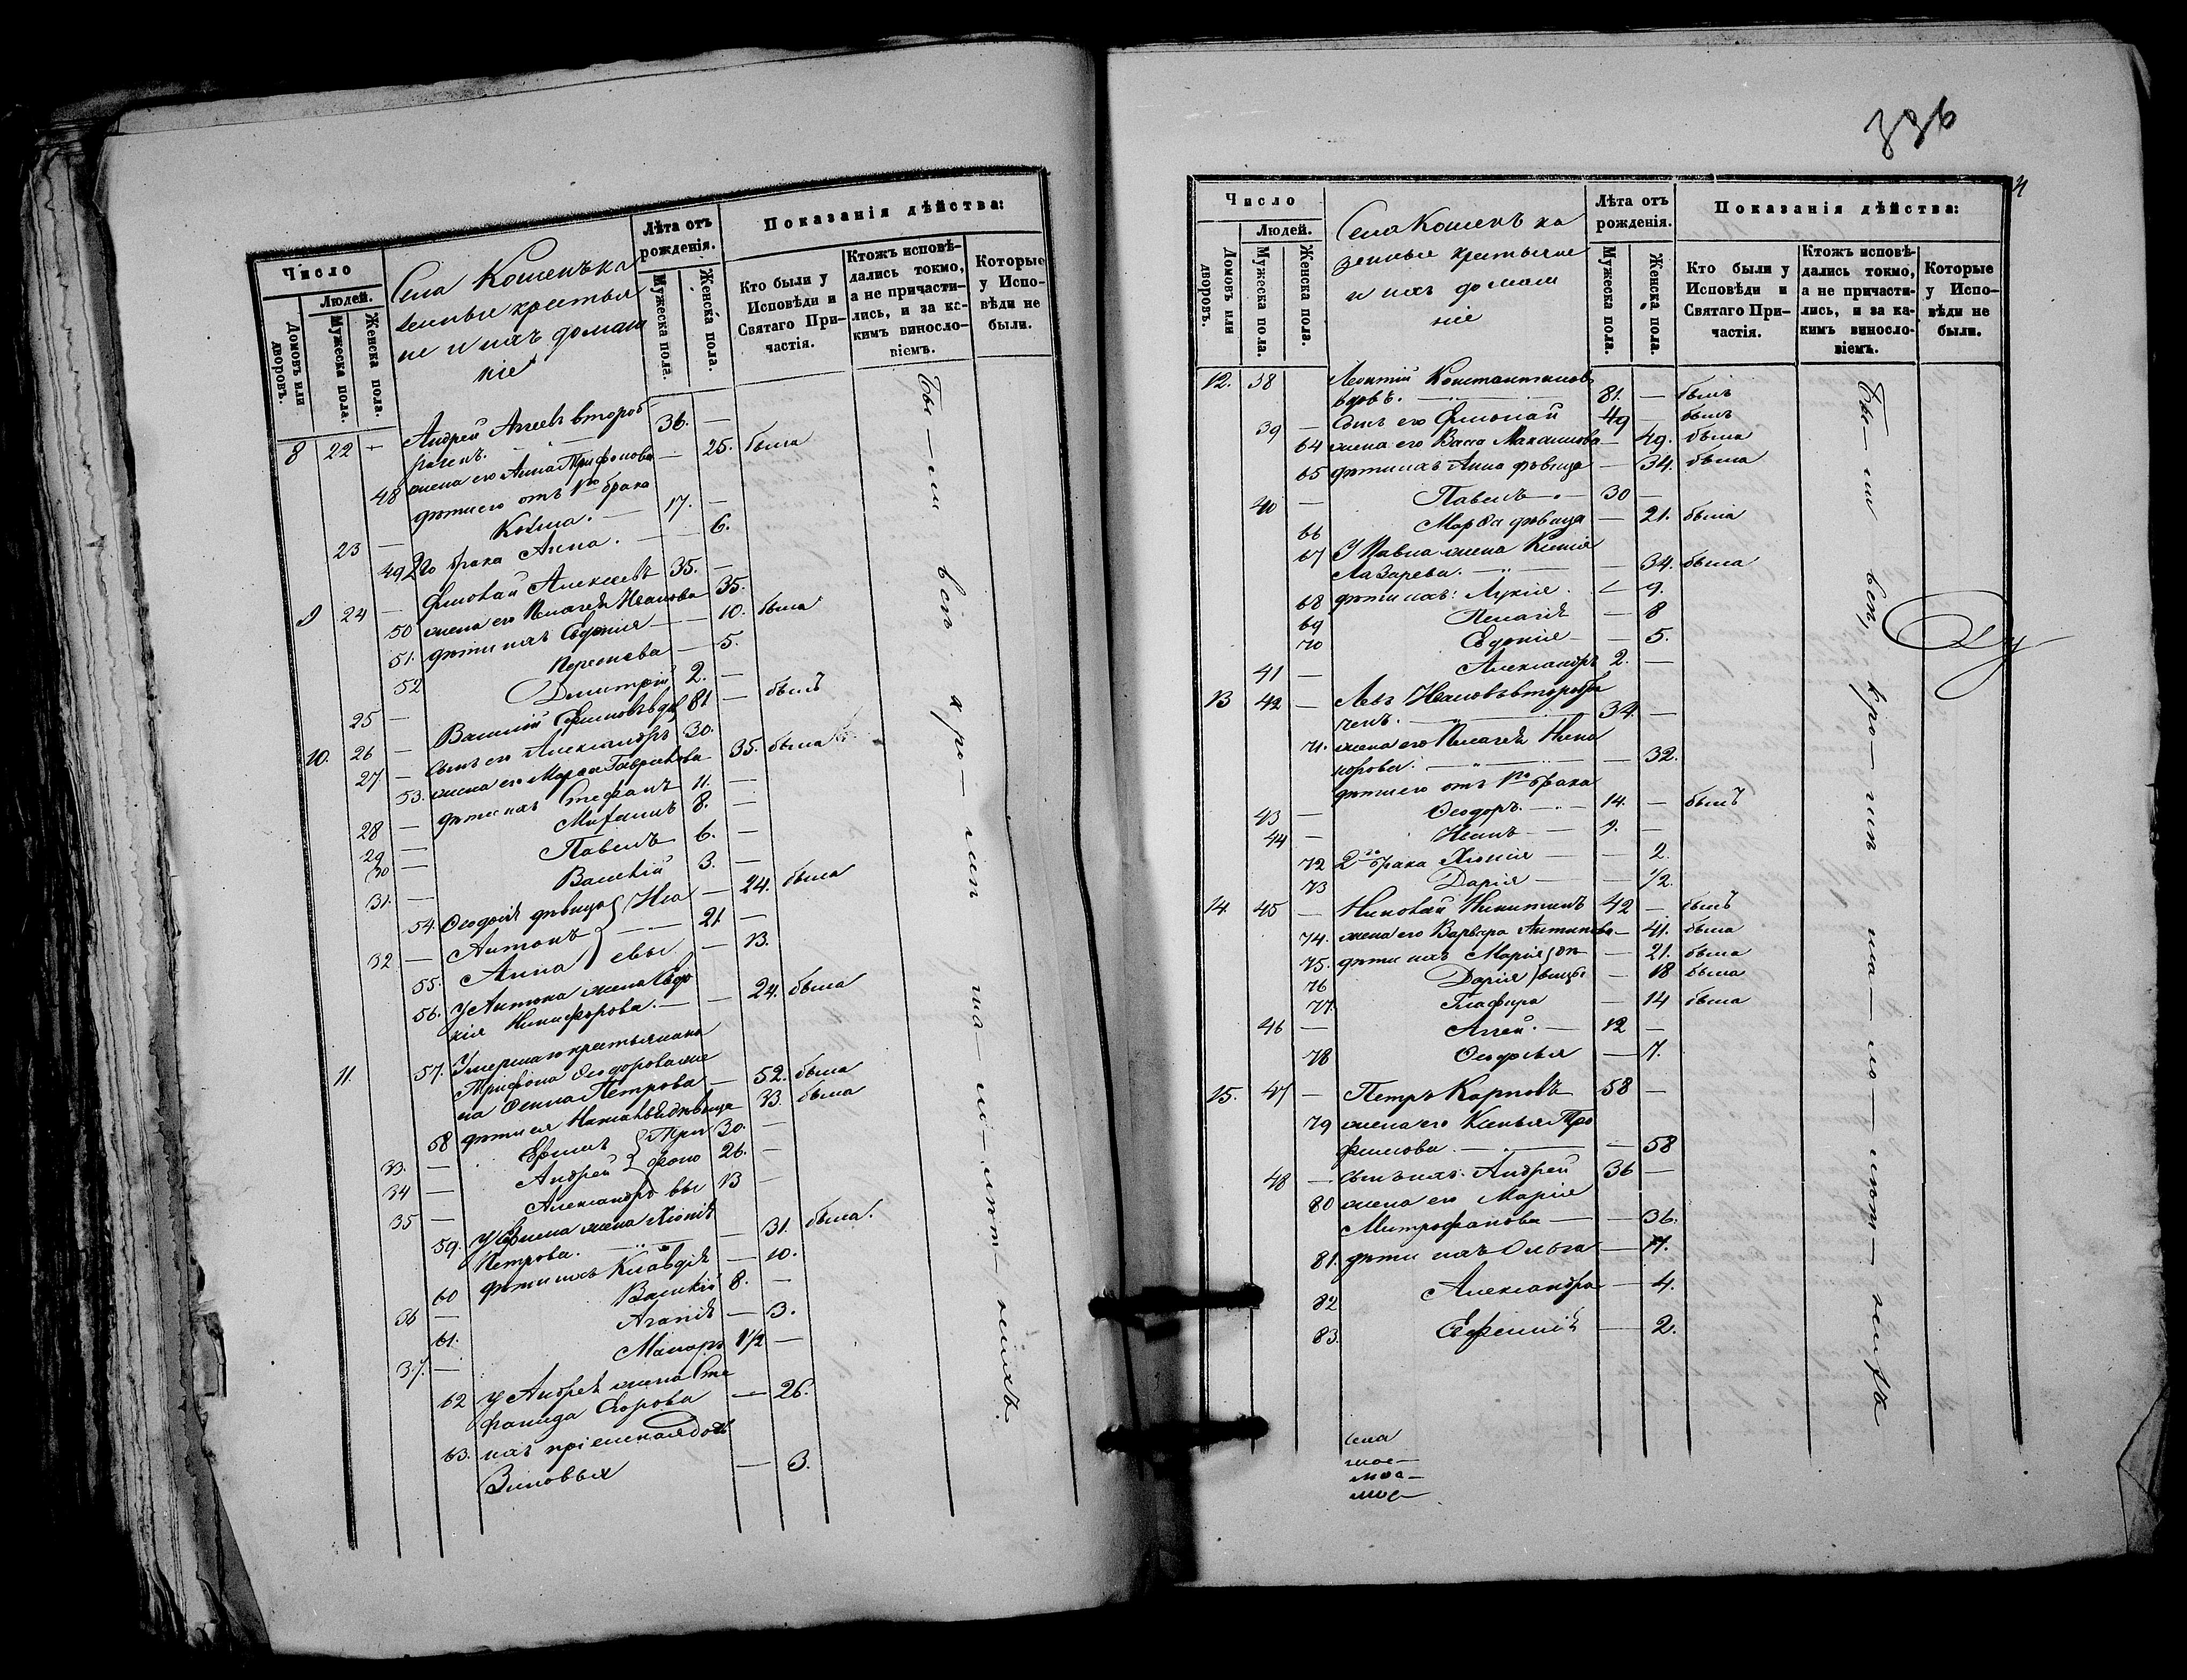 Число
Людей.
Домовъ или дворовъ.
Мужеска пола.
Женска пола.
Села Кошекъ ка
зенные крестья
не и ихъ домаш
ніе
Лѣта отъ рожденія.
Мужеска пола.
Женска пола.
Показанія дѣйства:
Кто были у Исповѣди и Святаго Причастія.
Ктожъ исповѣдались токмо, а не причастились, и за какимъ винословіемъ.
Которые у Исповѣди не были.
8 22 — Андрей Агеевъ второб
раченъ. — 36. —
48 жена его Анна Трифонова — 25. была
дѣти его отъ 1го брака
23 — Козма. — 17. —
49 2го брака Анна. — 6.
9 24 — Николай Алексѣевъ 35. —
50 жена его Пелагея Иванова 35.
51. дѣти ихъ Евдокія — 10. была
52 — 5.
25 — Димитрій 2. —
10. 26 — Василій вдов 81 — былъ
27 — Сынъ его Александръ 30.
53. жена его Марѳа Гаврилова 35. была
28 — дѣти ихъ Стефанъ 11. —
29 — Михаилъ 8. —
30 — Павелъ 6. —
31. — Василій 3. —
54. Ѳеодосія дѣвица Ива — 24. была
32 — Антонъ — 21 —
55. Анна евы — 13.
56. У Антона жена Евдо
кія Никифорова. — 24. была
11. 57. Умершаго крестьянина
Трифона Ѳеодорова же
на Ѳекла Петрова — 52. была
58 дѣти ея Наталья дѣвица 33. была
33. — Ефимъ Три 30. —
34 — Андрей фоно 26. —
35 — Александръ вы 13 —
59. У Ефима жена Хіонія
Петрова. — 31. была.
60 дѣти ихъ Клавдія — 10.
36 — Василій 8. —
61. Агапія — 3.
37. — Макаръ 1 1/2 —
62 У Андрея жена Сте
фанида Егорова — 26.
63. ихъ пріемная дочь
Зиновья — 3.
Бы — ли всѣ кро — мѣ ма — ло — лѣт — нихъ.
336
4
Число
Людей.
Домовъ или дворовъ.
Мужеска пола.
Женска пола.
Села Кошекъ ка
зенные крестьяне
и ихъ домаш
ніе
Лѣта отъ рожденія.
Мужеска пола.
Женска пола.
Показанія дѣйства:
Кто были у Исповѣди и Святаго Причастія.
Ктожъ исповѣдались токмо, а не причастились, и за какимъ винословіемъ.
Которые у Исповѣди не были.
12. 38 Леонтій Константиновъ
вдовъ. — 81. — былъ
39 — Сынъ его 49 — былъ
64 жена его Васса Максимова — 49. была
65 дѣти ихъ Анна дѣвица — 34. была
40 — Павелъ — 30 —
66 Марѳа дѣвица — 21. была
67 У Павла жена Ксенія
Лазарева. — 34. была
68 дѣти ихъ: Лукія. — 9.
69 Пелагія — 8
70 Евдокія — 5.
41 — Александръ 2. —
13 42 — Левъ Ивановъ второбра
ченъ. — 34. —
71. жена его Пелагея Ника
норова. — 32.
дѣти его отъ 1го брака
43 — Ѳеодоръ — 14. — былъ
44 — Иванъ — 9. —
72 2го брака Хіонія — 2.
73 Дарія — 1/2.
14. 45 — Николай Никитинъ 42 — былъ
74. жена его Варвара Антипова — 41. была
75. дѣти ихъ Марія дѣ — 21. была
76 Дарія вицы — 18 была
77. Глафира — 14 была
46 — Аггей. — 12 —
78 Ѳеодосья — 7.
15. 47 — Петръ Карповъ 58 —
79 жена его Ксенья Тро
фимова. — 58
48 — Сынъ ихъ Андрей 36 —
80 жена его Марія
Митрофанова — 36.
81. дѣти ихъ Ольга — 17.
82 Александра — 4.
83. Ефимія — 2.
Бы — ли всѣ, кро — мѣ ма — ло — лѣт — нихъ